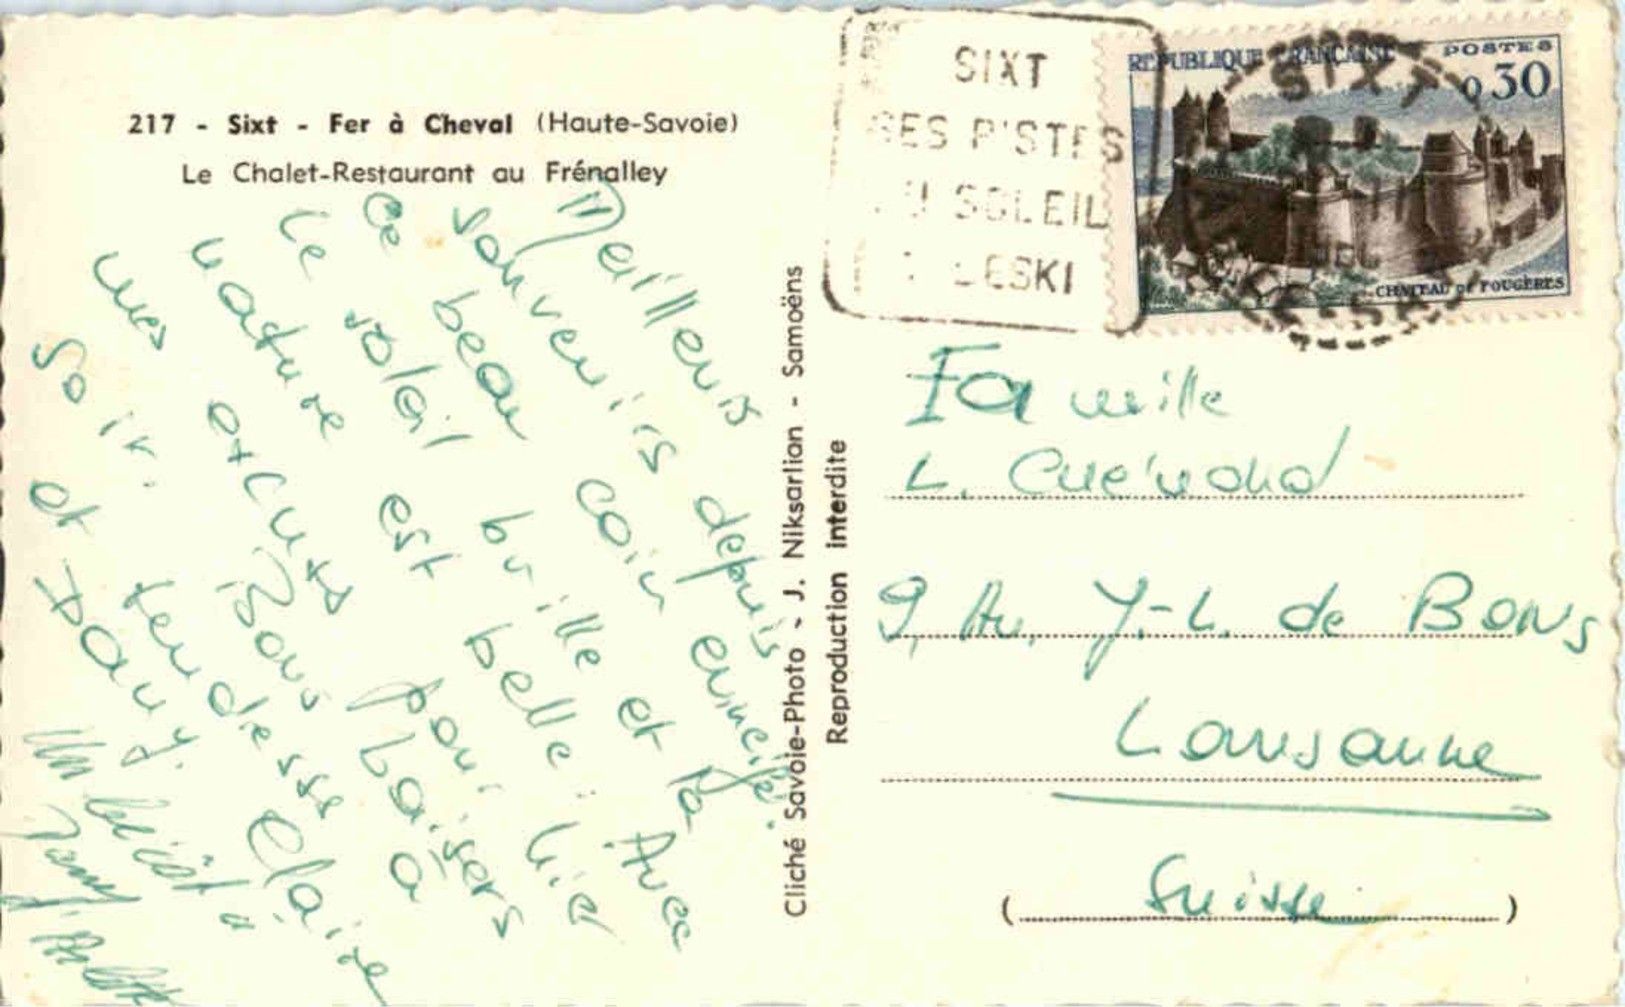 217 - Sixt - Fer à Cheval (Haute-Savoie)
Le Chalet-Restaurant au Frénalley
Meilleurs
souvenirs depuis
ce beau coin enneigé.
Le soleil brille et la
nature est belle. Avec
mes excuses pour hier
soir. Bons baisers
et tendesse à
Dany. Claire
Cliché Savoie-Photo - J. Niksarlian - Samoëns
Reproduction interdite
SIXT
SES PISTES
SOLEIL
LE SKI
REPUBLIQUE FRANÇAISE POSTES
0,30
CHATEAU DE FOUGÈRES
SIXT
Famille
L. Cuénoud
9, Av. J.-L. de Bons
Lausanne
(Suisse)